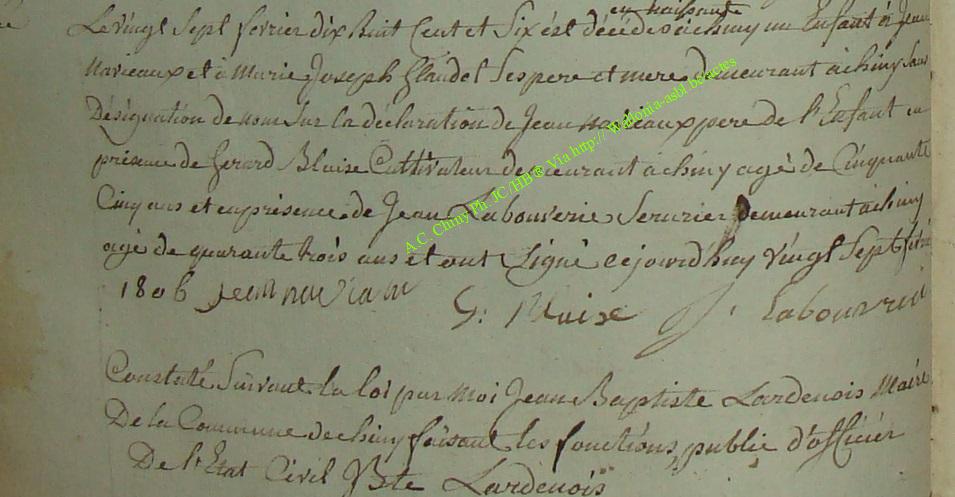 en naissante
Le vingt Sept fevrier dix huit Cent et Six est décédé à chiny un Enfant à Jean
Navieaux et à Marie Joseph Claudel Ses pere et mere demeurant à chiny Sans
Désignation de nom Sur la déclaration de Jean Navieaux pere de l'Enfant en
presence de Gerard Blaise Cultivateur demeurant à chiny agé de Cinquante
Cinq ans et en presence de Jean Labouverie Serurier demeurant à chiny
agé de quarante trois ans et ont Signé cejourd'huy vingt Sept fevrié
1806 jean naviaux G: Blaise J: Labouverie
Constaté Suivant la loi par Moi Jean Baptiste Lardenois Maire
De la Commune de chiny faisant les fonctions, public d'officier
De l'Etat Civil JBte Lardenois
A.C. Chiny Ph. JC/HB® Via http:// Wallonia-asbl.be/actes